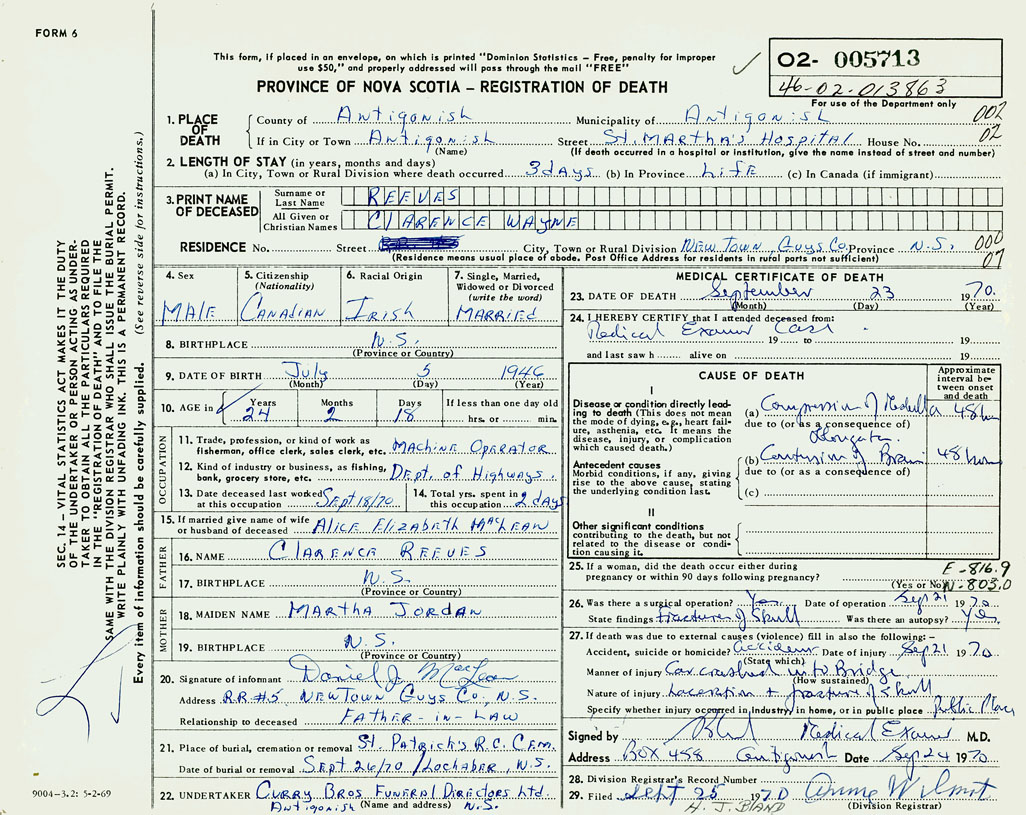 FORM 6
This form, if placed in an envelope, on which is printed "Dominion Statistics – Free, penalty for improper
use $50," and properly addressed will pass through the mail "FREE"
02- 005713
46-02-013863
For use of the Department only
PROVINCE OF NOVA SCOTIA – REGISTRATION OF DEATH
SEC. 14 – VITAL STATISTICS ACT MAKES IT THE DUTY
OF THE UNDERTAKER OR PERSON ACTING AS UNDER-
TAKER TO OBTAIN ALL THE PARTICULARS REQUIRED
IN THE "REGISTRATION OF DEATH" AND TO FILE THE
SAME WITH THE DIVISION REGISTRAR WHO SHALL ISSUE THE BURIAL PERMIT.
WRITE PLAINLY WITH UNFADING INK. THIS IS A PERMANENT RECORD.
Every item of information should be carefully supplied. (See reverse side for instructions.)
1. PLACE OF DEATH
County of Antigonish Municipality of Antigonish 002
If in City or Town Antigonish Street St. Martha's Hospital House No. 02
(Name) (If death occurred in a hospital or institution, give the name instead of street and number)
2. LENGTH OF STAY (in years, months and days)
(a) In City, Town or Rural Division where death occurred 3 days (b) In Province Life (c) In Canada (if immigrant)
3. PRINT NAME OF DECEASED
Surname or Last Name REEVES
All Given or Christian Names CLARENCE WAYNE
RESIDENCE No. Street City, Town or Rural Division New Town, Guys Co. Province N.S. 000
(Residence means usual place of abode. Post Office Address for residents in rural parts not sufficient) 07
4. Sex
MALE
5. Citizenship
(Nationality)
Canadian
6. Racial Origin
Irish
7. Single, Married,
Widowed or Divorced
(write the word)
Married
8. BIRTHPLACE N.S.
(Province or Country)
9. DATE OF BIRTH July 5 1946
(Month) (Day) (Year)
10. AGE in Years Months Days If less than one day old
24 2 18 hrs. or min.
OCCUPATION
11. Trade, profession, or kind of work as
fisherman, office clerk, sales clerk, etc. Machine Operator
12. Kind of industry or business, as fishing,
bank, grocery store, etc. Dept. of Highways.
13. Date deceased last worked
at this occupation Sept 18/70
14. Total yrs. spent in
this occupation 2 days
15. If married give name of wife
or husband of deceased Alice Elizabeth MacLean
FATHER
16. NAME Clarence Reeves
17. BIRTHPLACE N.S.
(Province or Country)
MOTHER
18. MAIDEN NAME Martha Jordan
19. BIRTHPLACE N.S.
(Province or Country)
20. Signature of informant Daniel J. MacLean
Address RR#5 New Town Guys Co, N.S.
Relationship to deceased Father-in-law
21. Place of burial, cremation or removal St Patrick's R.C. Cem.
Date of burial or removal Sept 26/70 / Lochaber, N.S.
22. UNDERTAKER Curry Bros Funeral Directors Ltd.
Antigonish (Name and address) N.S.
9004-3.2: 5-2-69
MEDICAL CERTIFICATE OF DEATH
23. DATE OF DEATH September 23 1970.
(Month) (Day) (Year)
24. I HEREBY CERTIFY that I attended deceased from:
Medical Examr Case. 19 to 19
and last saw h alive on 19
CAUSE OF DEATH
Approximate
interval be-
tween onset
and death
I
Disease or condition directly lead-
ing to death (This does not mean
the mode of dying, e.g., heart fail-
ure, asthenia, etc. It means the
disease, injury, or complication
which caused death.)
(a) Compression of Medulla 48 hrs
due to (or as a consequence of)
Oblongata.
Antecedent causes
Morbid conditions, if any, giving
rise to the above cause, stating
the underlying condition last.
(b) Contusion of Brain 48 hours
due to (or as a consequence of)
(c)
II
Other significant conditions
contributing to the death, but not
related to the disease or condi-
tion causing it.
25. If a woman, did the death occur either during
pregnancy or within 90 days following pregnancy?
(Yes or No)
E-816.9
N-803.0
26. Was there a surgical operation? Yes. Date of operation Sep 21 1970
State findings fracture of Skull Was there an autopsy? Yes.
27. If death was due to external causes (violence) fill in also the following:–
Accident, suicide or homicide? Accident Date of injury Sep 21 1970
(State which)
Manner of injury Car crashed into Bridge
(How sustained)
Nature of injury Laceration + fracture of Skull
Specify whether injury occurred in Industry, in home, or in public place Public Place
Signed by Medical Examr M.D.
Address Box 458 Antigonish Date Sep 24 1970
28. Division Registrar's Record Number
29. Filed Sept 25 1970 Anne Wilmot
H. J. Bland (Division Registrar)